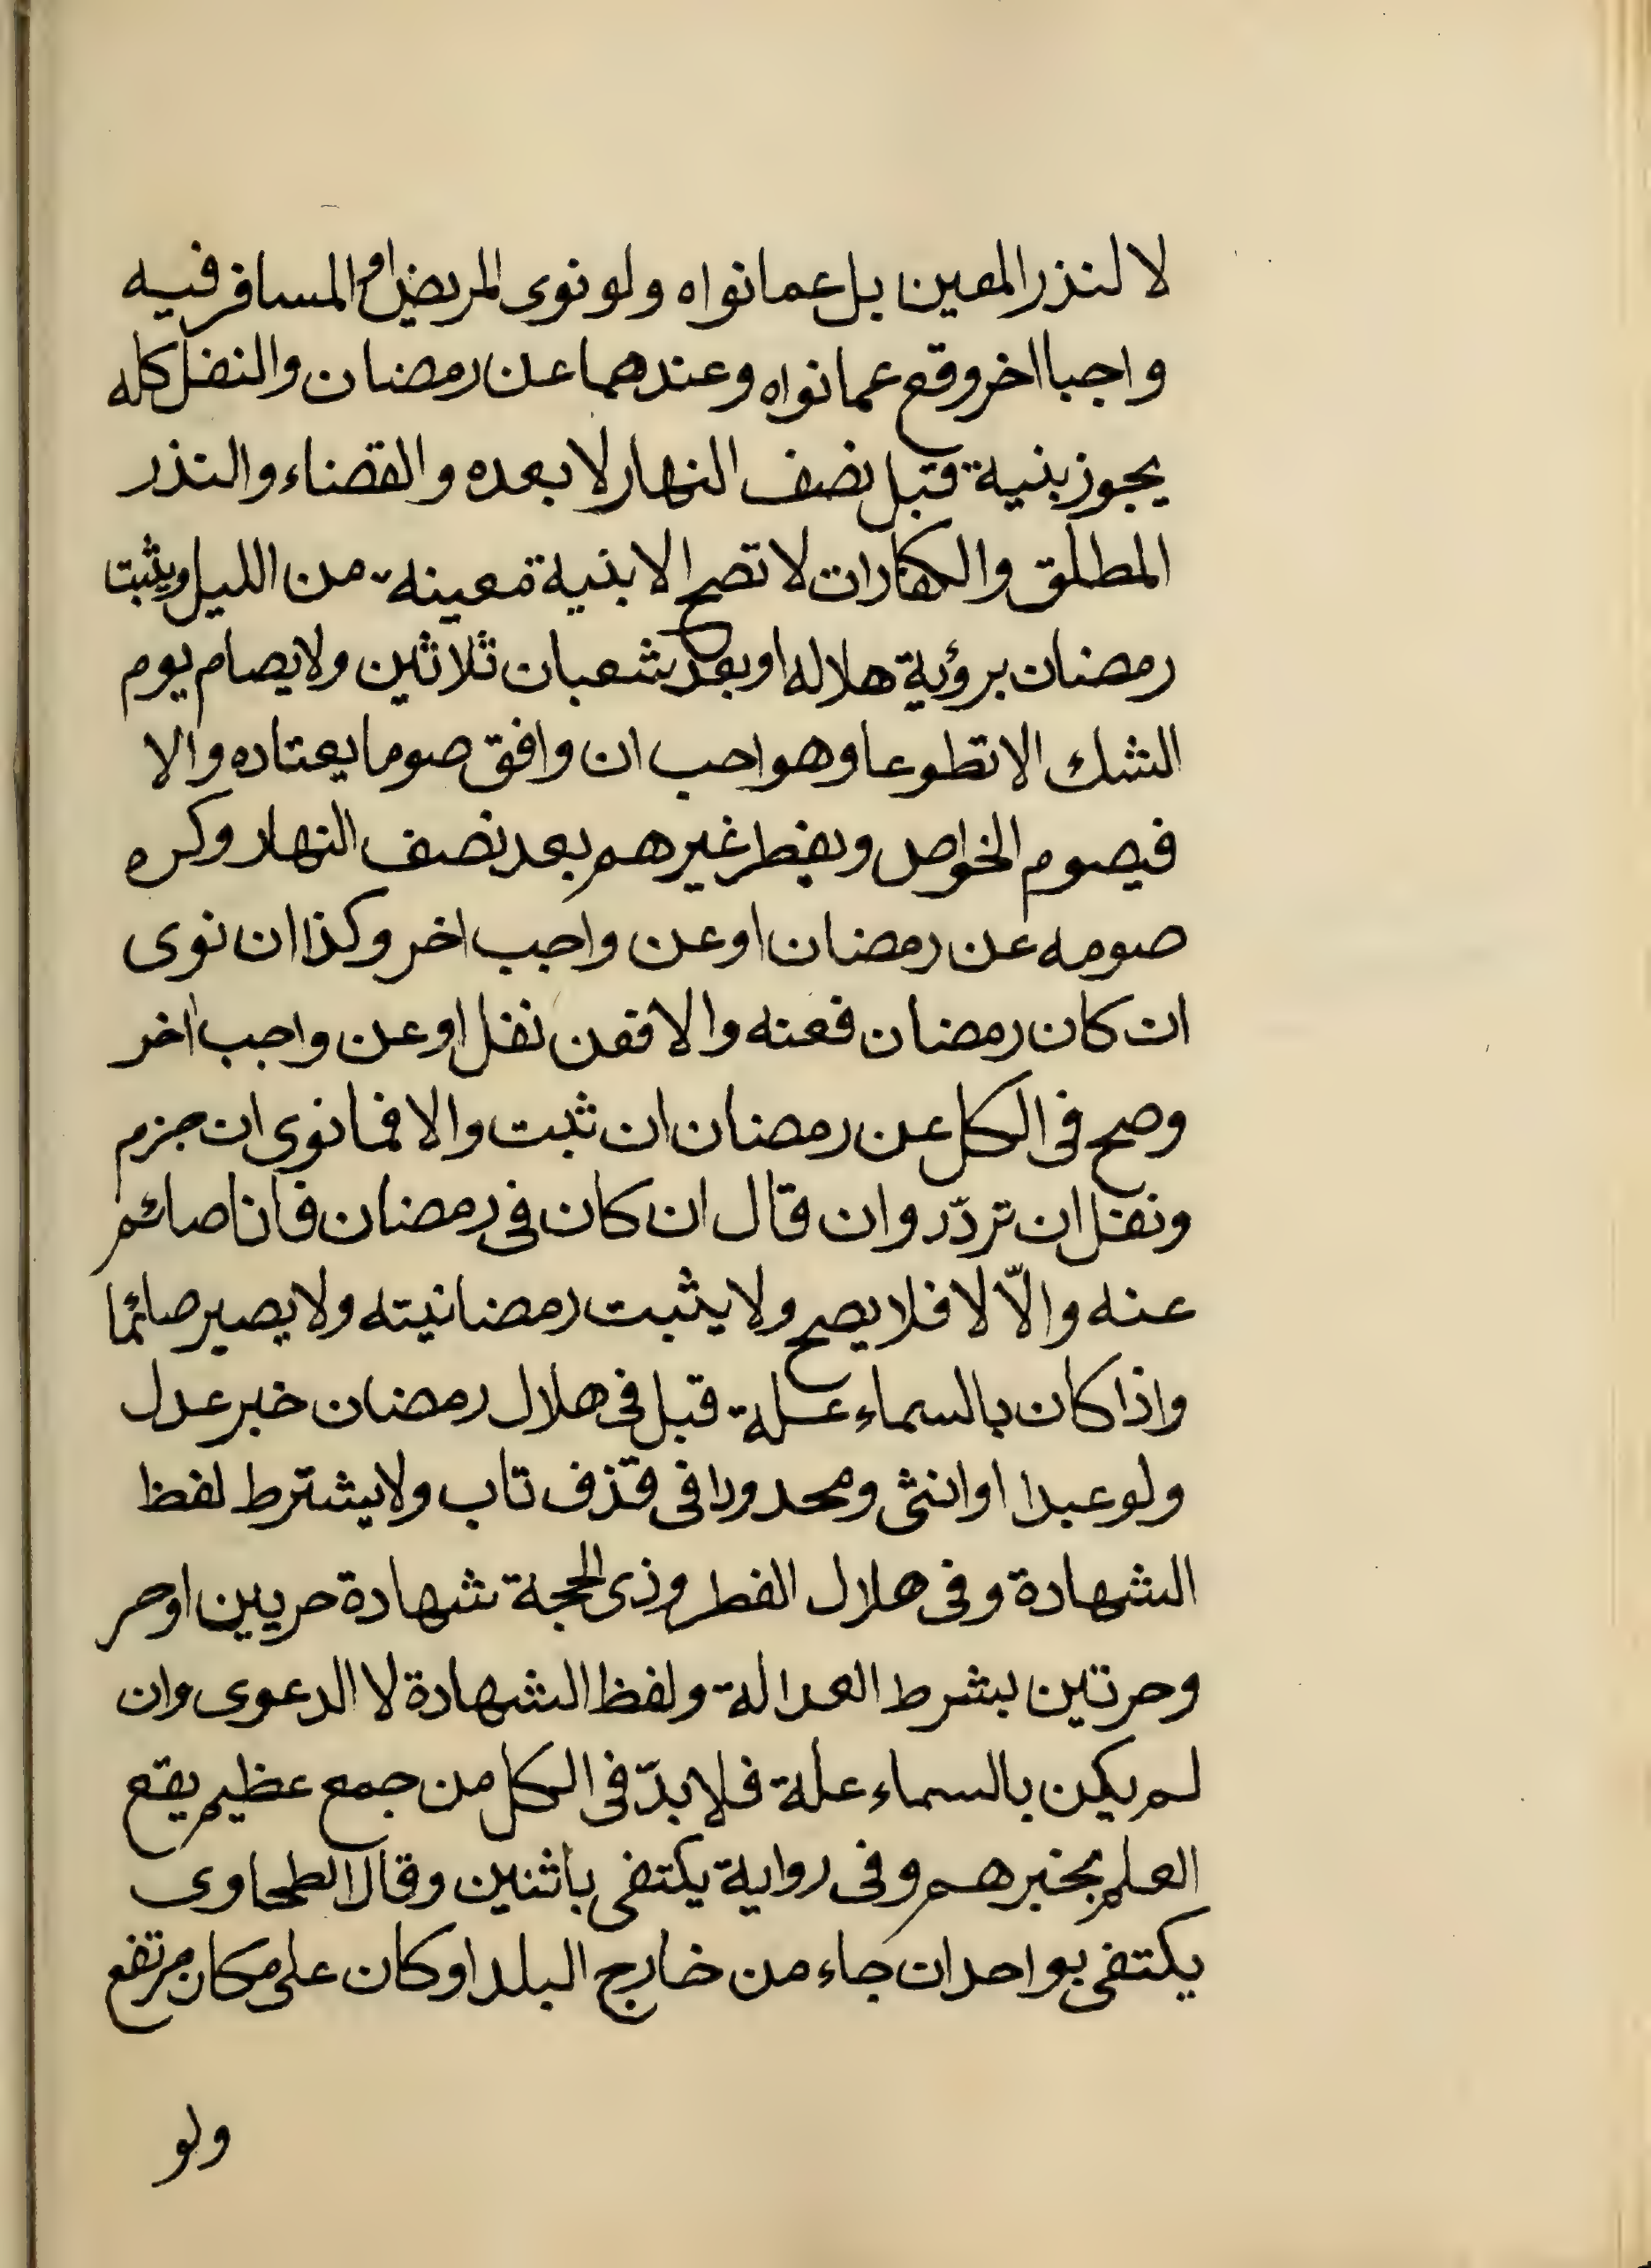 لا لنذر المعين بل عما نواه ولو نوى المريض او المسافر فيه
واجبا اخر وقع عما نواه وعندهما عن رمضان والنفل كله
يجوز بنية قبل نصف النهار لا بعده والقضاء والنذر
المطلق والكفارات لا تصح الا بنية معينة من الليل ويثبت
رمضان برؤية هلاله او بعد شعبان ثلاثين ولا يصام يوم
الشك الا تطوعا وهو احب ان وافق صوما يعتاده والا
فيصوم الخواص ويفطر غيرهم بعد نصف النهار وكره
صومه عن رمضان او عن واجب اخر وكذا ان نوى
ان كان رمضان فعنه والا فعن نفل او عن واجب اخر
وصح فى الكل عن رمضان ان ثبت والا فما نوى ان جزم
ونفل ان تردّد وان قال ان كان فى رمضان فانا صائم
عنه والّا لا فلا يصح ولا يثبت رمضانيته ولا يصير صائما
واذا كان بالسماء علة قبل فى هلال رمضان خبر عدل
ولو عبدا او انثى ومحدودا فى قذف تاب ولا يشترط لفظ
الشهادة وفى هلال الفطر وذى الحجة شهادة حريين او حر
وحرتين بشرط العدالة ولفظ الشهادة لا الدعوى وان
لم يكن بالسماء علة فلا بدّ فى الكل من جمع عظيم يقع
العلم بخبرهم وفى رواية يكتفى باثنين وقال الطحاوى
يكتفى بواحد ان جاء من خارج البلد او كان على مكان مرتفع
ولو